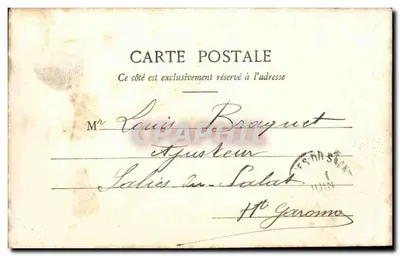 CARTE POSTALE
Ce côté est exclusivement réservé à l'adresse
Mr Louis Braquet
Ajusteur
Salies-du-Salat
Hte Garonne
JUIN